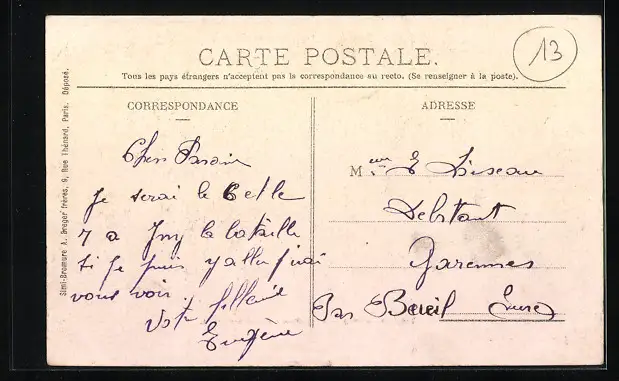 CARTE POSTALE.
13
Tous les pays étrangers n'acceptent pas la correspondance au recto. (Se renseigner à la poste).
CORRESPONDANCE
Cher Parain
Je serai le 6 et le
7 a Ivry la bataille
si je puis y aller j'irai
vous voir
Votre filleul
Eugène
ADRESSE
Meur E Loiseau
Debitant
Garennes
Par Bueil Eure
Simi-Bromure A. Breger frères, 9, Rue Thénard, Paris. Déposé.